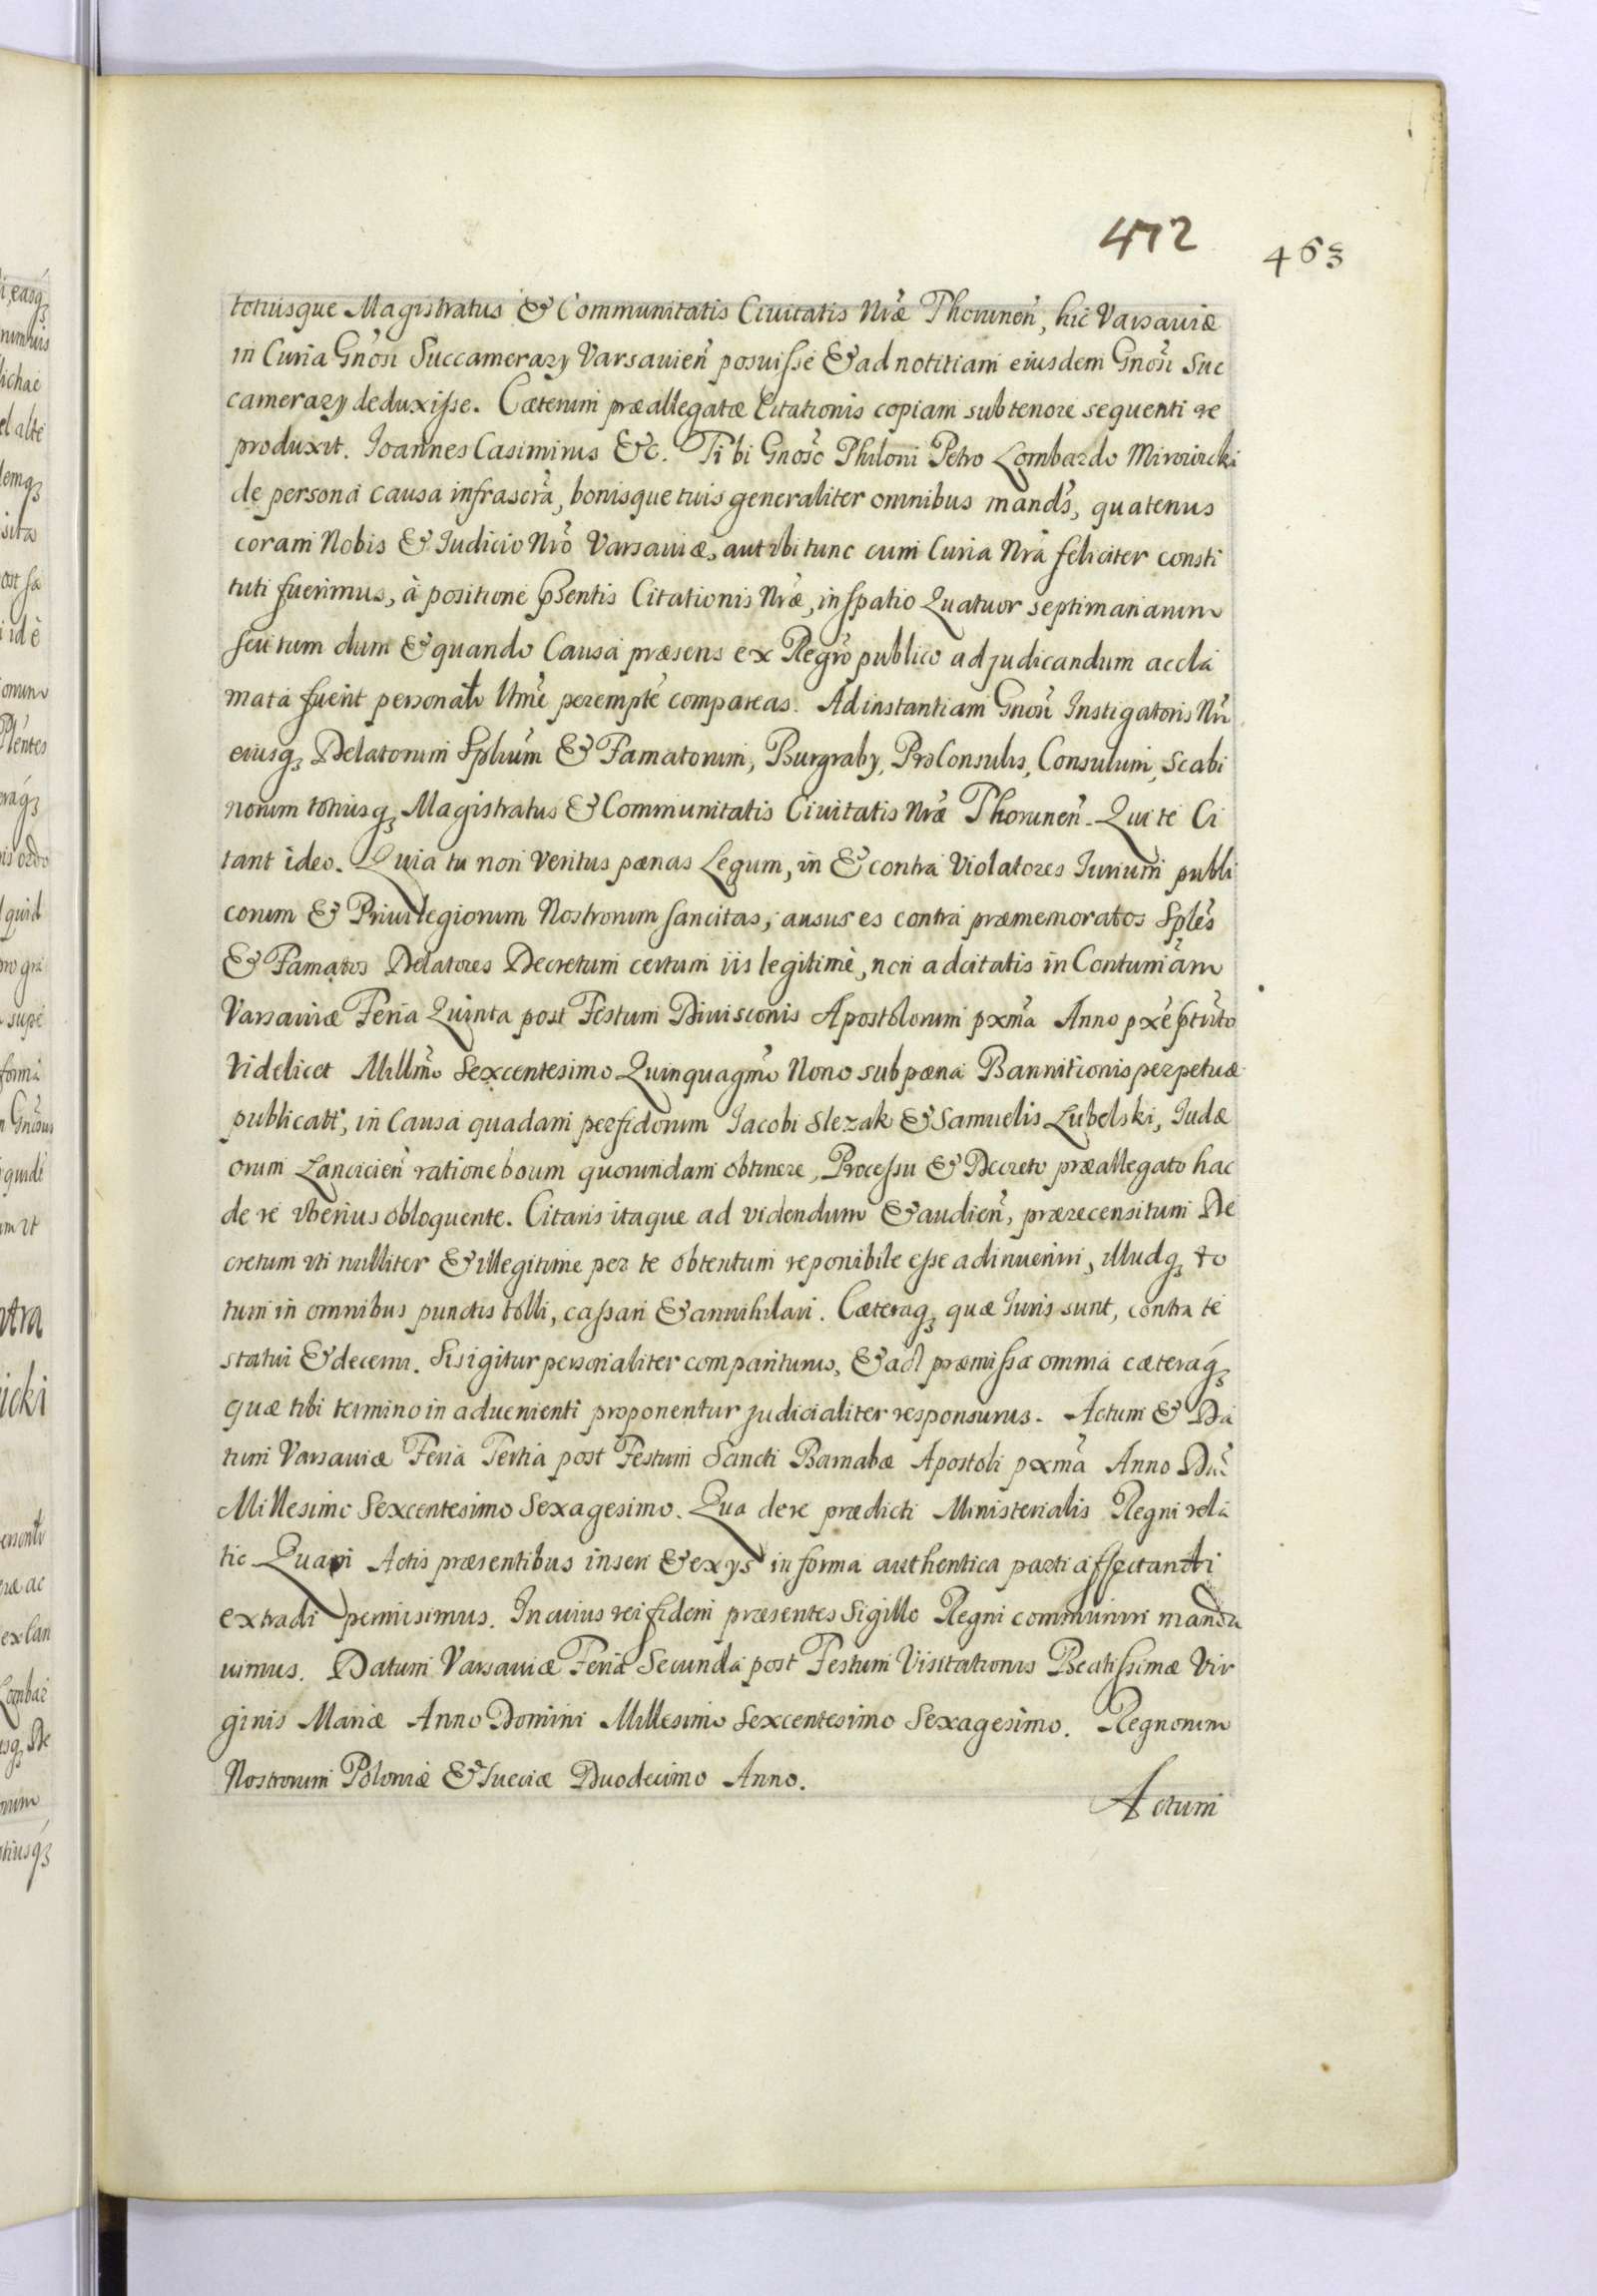 472
463
totiusque Magistratus & Communitatis Ciuitatis Nræ Thorunen, hic Varsauiæ
in Curia Gnosi Succamerary Varsauien posuisse & ad notitiam eiusdem Gnosi Suc
camerary deduxisse. Cæterum præallegatæ Citationis copiam sub tenore sequenti re
produxit. Ioannes Casimirus &c. Tibi Gnoso Philoni Petro Lombardo
de persona causa infrascra, bonisque tuis generaliter omnibus mands, quatenus
coram Nobis & Iudicio Nro Varsauiæ, aut ibi tunc cum Curia Nra feliciter consti
tuti fuerimus, à positione pSentis Citationis Nræ, in spatio Quatuor septimanarum
seu tum dum & quando Causa præsens ex Regro publico ad judicandum accla
mata fuerit personalr Utme perempte compareas. Ad instantiam Gnosi Instigatoris Nri
eiusq Delatorum Splium & Famatorum, Burgraby, ProConsulis, Consulum, Scabi
norum totiusq Magistratus & Communitatis Ciuitatis Nræ Thorunen. Qui te Ci
tant ideo. Quia tu non veritus pænas Legum, in & contra Violatores Iurium publi
corum & Priuilegiorum Nostrorum sancitas, ausus es contra præmemoratos Sples
& Famatos Delatores Decretum certum iis legitime, non adcitatis in Contumam
Varsauiæ Feria Quinta post Festum Diuisionis Apostolorum pxma Anno pxe ptrito
Videlicet Millmo Sexcentesimo Quinquagmo Nono sub pæna Bannitionis perpetuæ
publicatt, in Causa quadam perfidorum Iacobi Slezak & Samuelis Lubelski, Iudæ
orum Lancicien ratione boum quorundam obtinere, Processu & Decreto præallegato hac
de re vberius obloquente. Citaris itaque ad videndum & audien, prærecensitum De
cretum vti nulliter & illegitime per te obtentum reponibile esse adinueniri, illudq to
tum in omnibus punctis tolli, cassari & annihilari. Cæteraq quæ Iuris sunt, contra te
statui & decerni. Sis igitur personaliter compariturus, & ad præmissa omnia cæteraq
quæ tibi termino in aduenienti proponentur judicialiter responsurus. Actum & Da
tum Varsauiæ Feria Tertia post Festum Sancti Barnabæ Apostoli pxma Anno Dni
Millesimo Sexcentesimo Sexagesimo. Qua de re prædicti Ministerialis Regni rela
tio Quam Actis præsentibus inseri & ex ys in forma authentica parti affectanti
extradi permisimus. In cuius rei fidem præsentes Sigillo Regni communiri manda
uimus. Datum Varsauiæ Feria Secunda post Festum Visitationis Beatissimæ Vir
ginis Mariæ Anno Domini Millesimo Sexcentesimo Sexagesimo. Regnorum
Nostrorum Poloniæ & Sueciæ Duodecimo Anno.
Actum